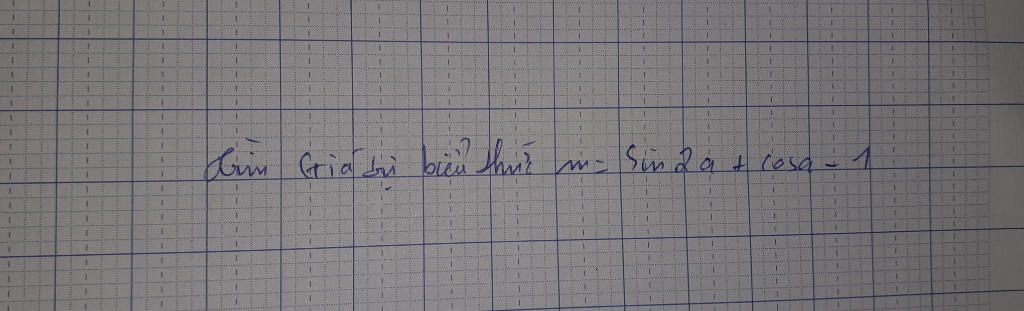 Tìm Giá trị biểu thức m = Sin2a + cosa - 1